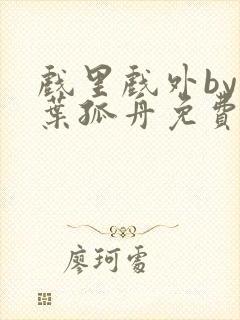 戲里戲外by
葉孤舟免費
廖珂雪